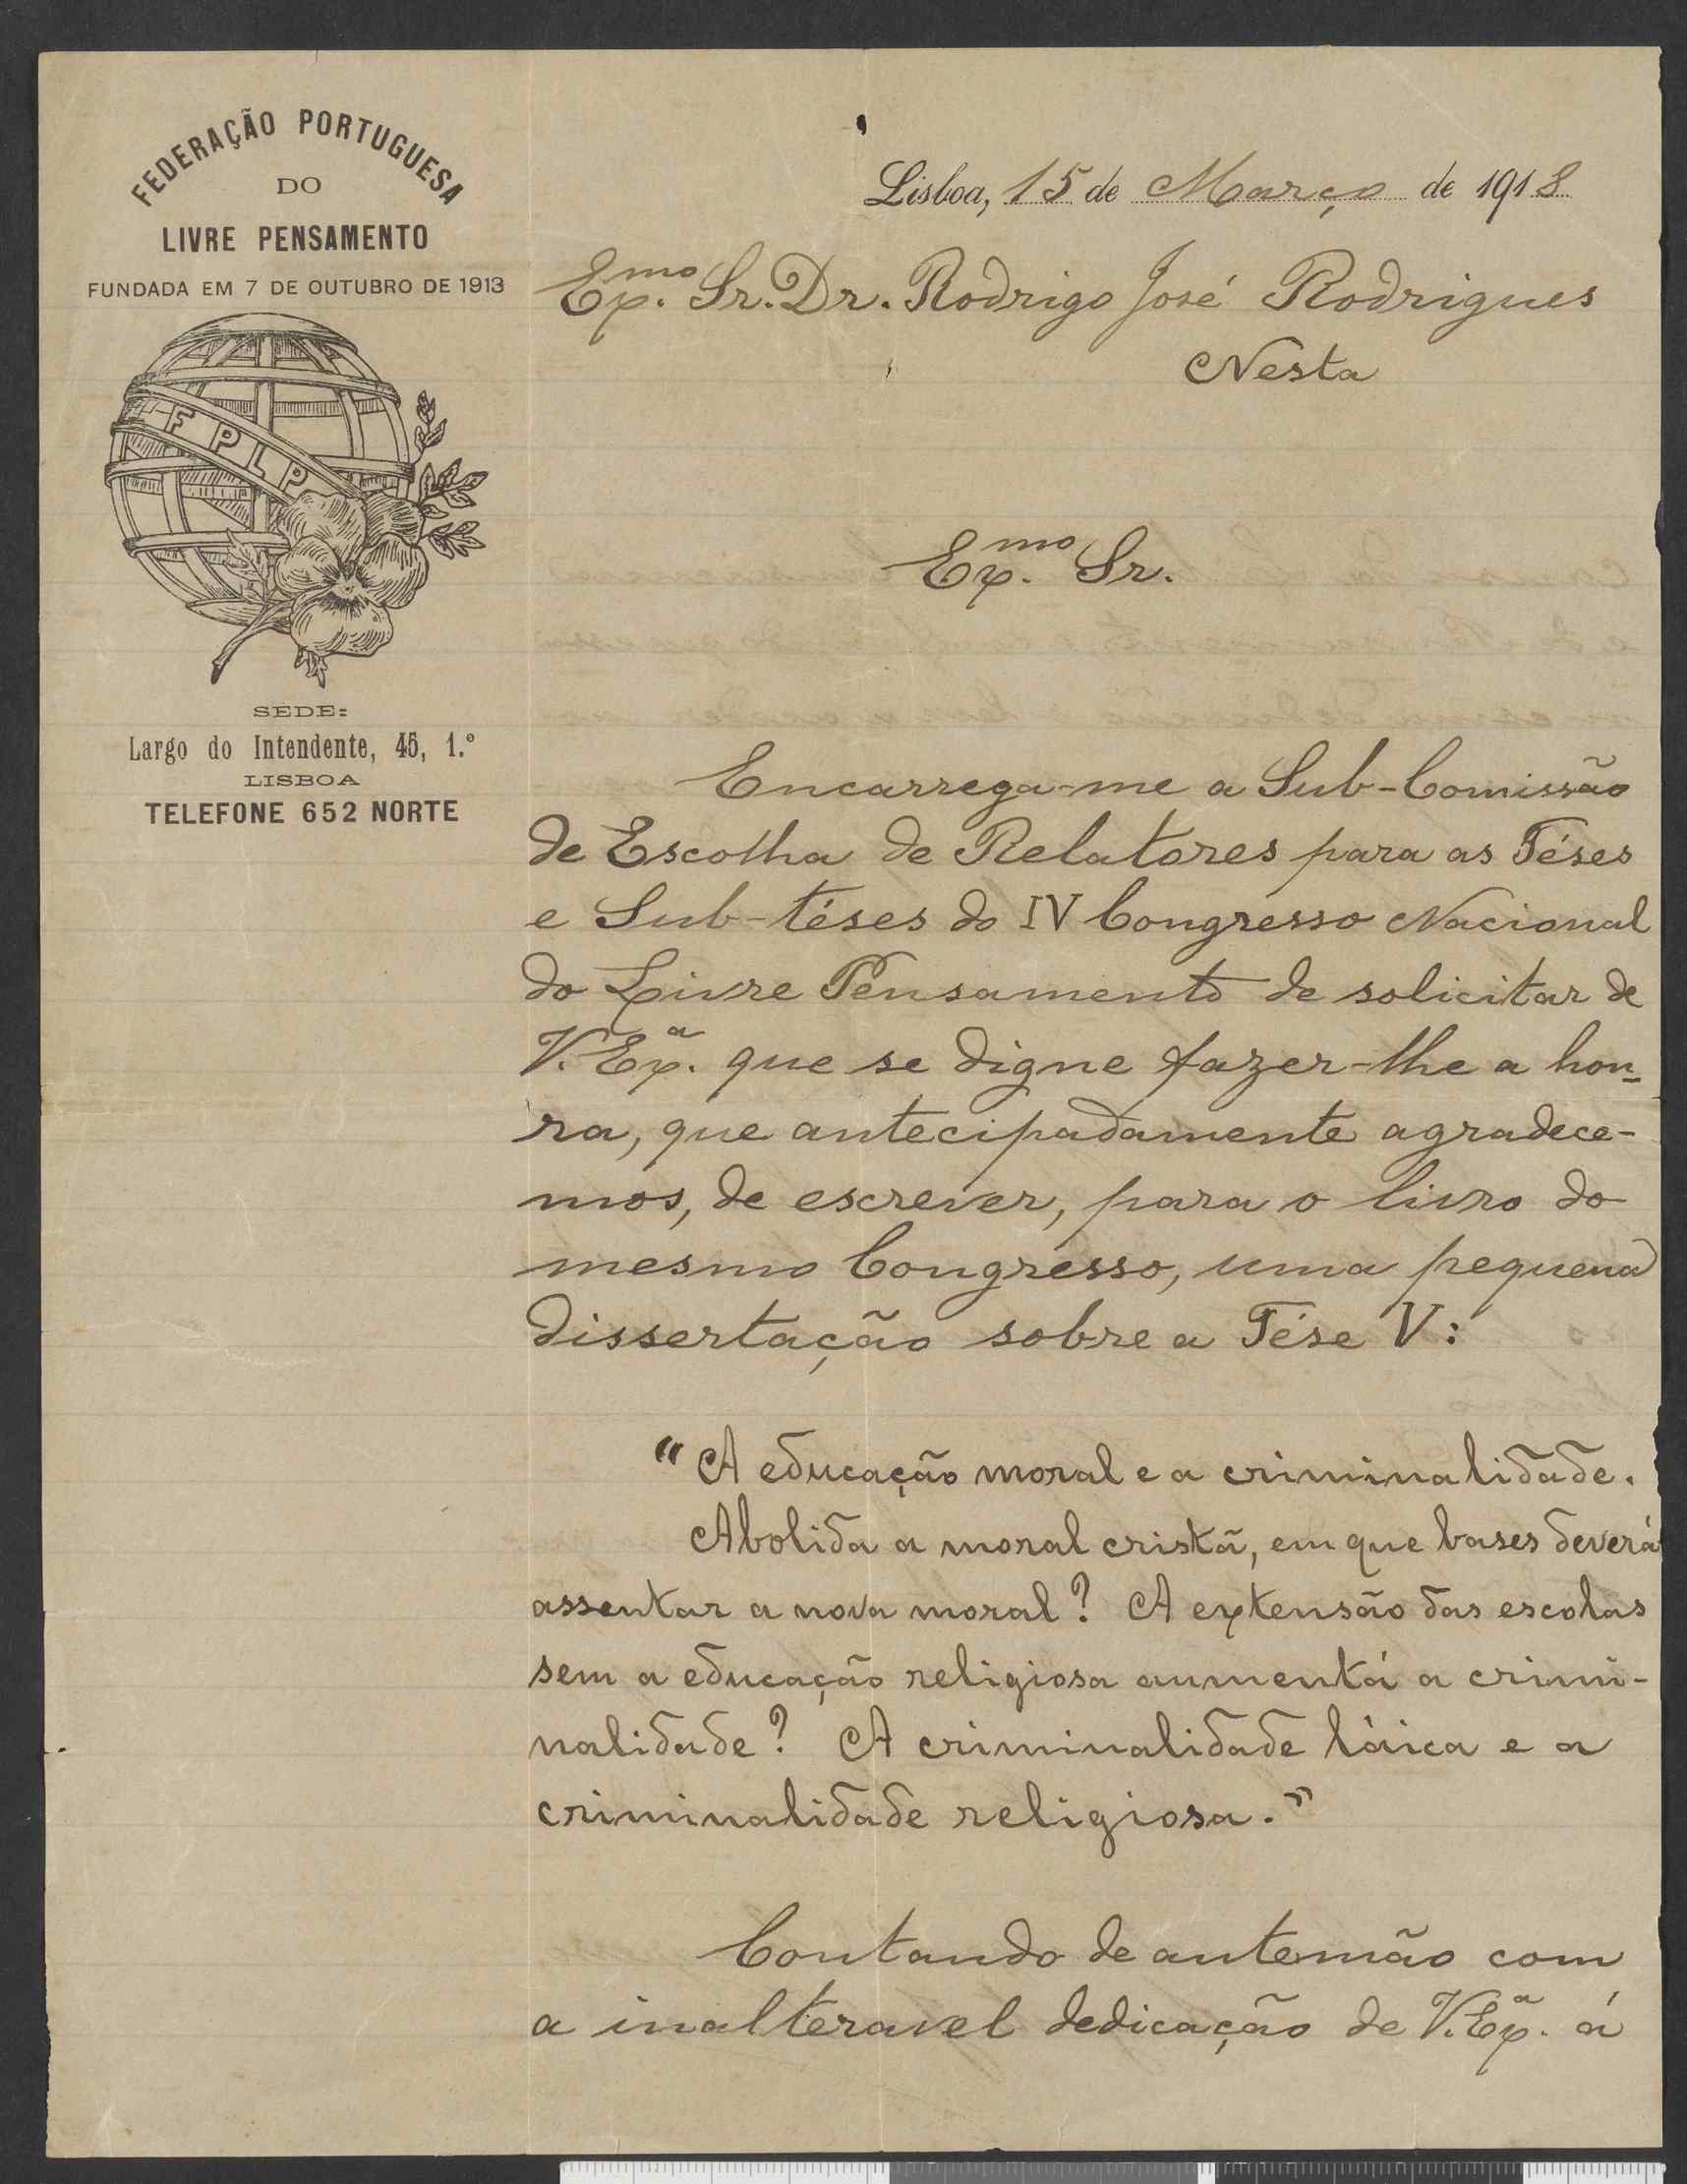 FEDERAÇÃO PORTUGUESA
DO
LIVRE PENSAMENTO
FUNDADA EM 7 DE OUTUBRO DE 1913
F P L P
SEDE:
Largo do Intendente, 45, 1.º
LISBOA
TELEFONE 652 NORTE
Lisboa, 15 de Março de 1918
Ex.mo Sr. Dr. Rodrigo José Rodrigues
Nesta
Ex.mo Sr.
Encarrega-me a Sub-Comissão
de Escolha de Relatores para as Téses
e Sub-téses do IV Congresso Nacional
do Livre Pensamento de solicitar de
V. Ex.a que se digne fazer-lhe a hon-
ra, que antecipadamente agradece-
mos, de escrever, para o livro do
mesmo Congresso, uma pequena
dissertação sobre a Tése V:
"A educação moral e a criminalidade.
Abolida a moral cristã, em que bases deverá
assentar a nova moral? A extensão das escolas
sem a educação religiosa aumentá a crimi-
nalidade? A criminalidade láica e a
criminalidade religiosa."
Contando de antemão com
a inalteravel dedicação de V. Ex.a á